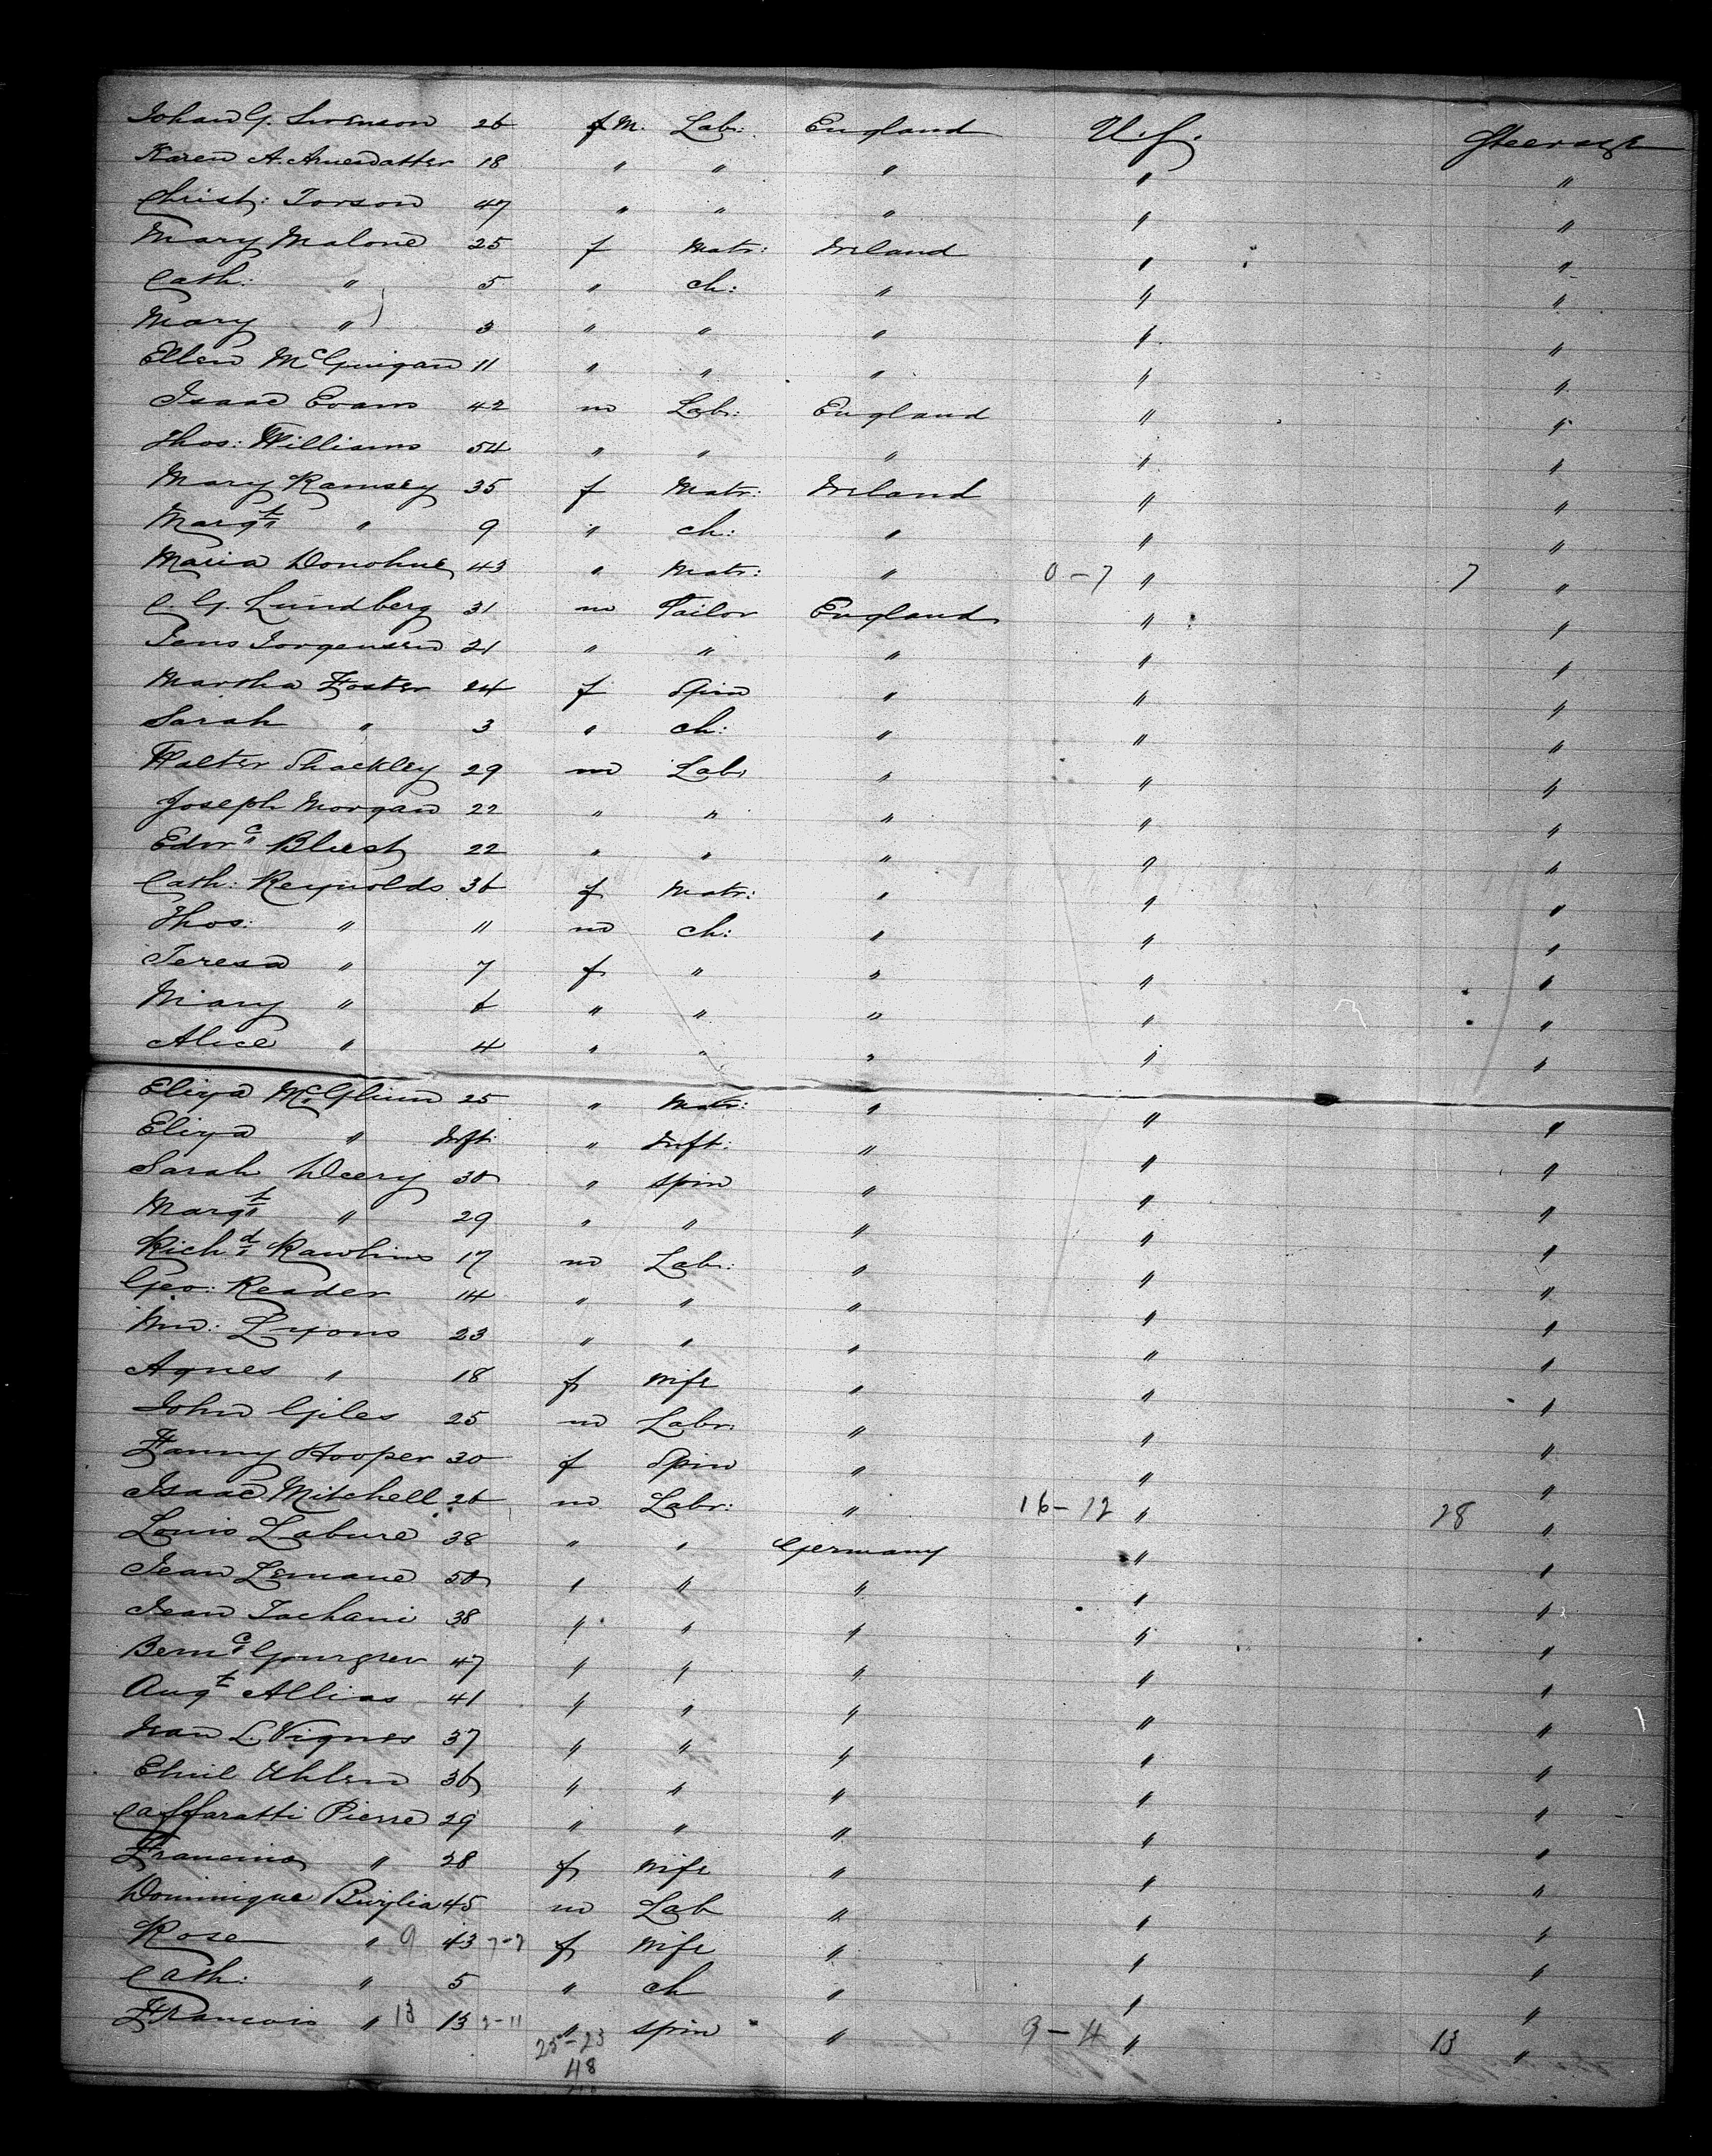 Johan G. Swenson 26 f M. Labr: England U.S. Steerage
Karen A. Arnesdatter 18 " " " " "
Christ: Torson 47 " " " " "
Mary Malone 25 f Matr: Ireland " "
Cath: " 5 " ch: " " "
Mary " 3 " " " " "
Ellen McGuigan 11 " " " " "
Isaac Evans 42 m Labr: England " "
Thos: Williams 54 " " " " "
Mary Ramsey 35 f Matr: Ireland " "
Margt " 9 " ch: " " "
Maria Donohue 43 " Matr: " 0-7 " 7 "
C. G. Lundberg 31 m Tailor England " "
Jens Jorgensen 21 " " " " "
Martha Foster 24 f Spin " " "
Sarah " 3 " ch: " " "
Walter Shackley 29 m Labr " " "
Joseph Morgan 22 " " " " "
Edwd 22 " " " " "
Cath: Reynolds 36 f Matr: " " "
Thos: " 11 m ch: " " "
Teresa " 7 f " " " "
Mary " 6 " " " " "
Alice " 4 " " " " "
Eliza McGlinn 25 " Matr: " " "
Eliza " Inft: " Inft: " " "
Sarah Deery 30 " Spin " " "
Margt " 29 " " " " "
Richd Rawlins 17 m Labr: " " "
Geo: Reader 14 " " " " "
Wm: Lyons 23 " " " " "
Agnes " 18 f Wife " " "
John Giles 25 m Labr: " " "
Fanny Hooper 30 f Spin " " "
Isaac Mitchell 26 m Labr: " 16-12 " 28 "
Louis Labure 38 " " Germany " "
Jean Lemane 50 " " " " "
Jean Zachani 38 " " " " "
Bernd 47 " " " " "
Augt Allias 41 " " " " "
Jean L. Vignes 37 " " " " "
Emil Uhlen 36 " " " " "
Caffaratti Pierre 29 " " " " "
Francina " 28 f Wife " " "
Dominique 45 m Lab " " "
Rose " 9 43 7-2 f Wife " " "
Cath: " 5 " ch " " "
Francois " 13 13 2-11 " Spin " 9-4 " 13 "
25-23
48